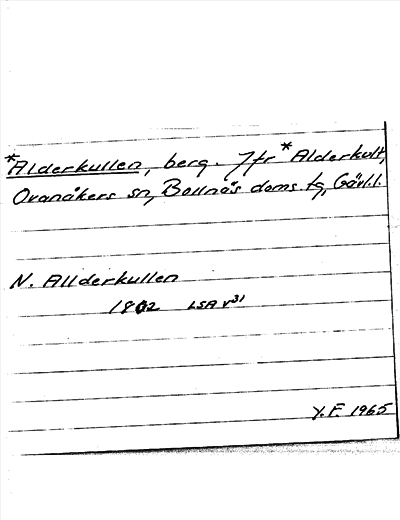 *Alderkullen, berg. Jfr *Alderkult,
Ovanåkers sn, Bollnäs doms. tg, Gävl.l.
N. Allderkullen
1802 LSA v31
Y.F 1965